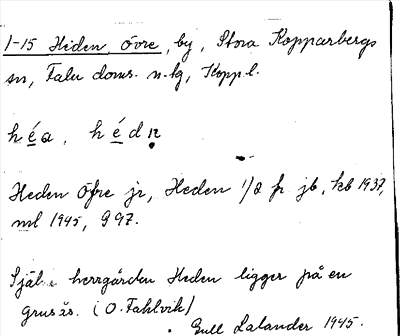 1-15 Heden, Övre, by, Stora Kopparbergs
sn, Falu doms. n. lg, Kopp. l.
héa, hédn
Heden Öfre jr, Heden 1/2 fr jb, kb 1937,
ml 1945, 997.
Själva herrgården Heden ligger på en
grusås. (O. Fahlvik)
Gull Lalander 1945.